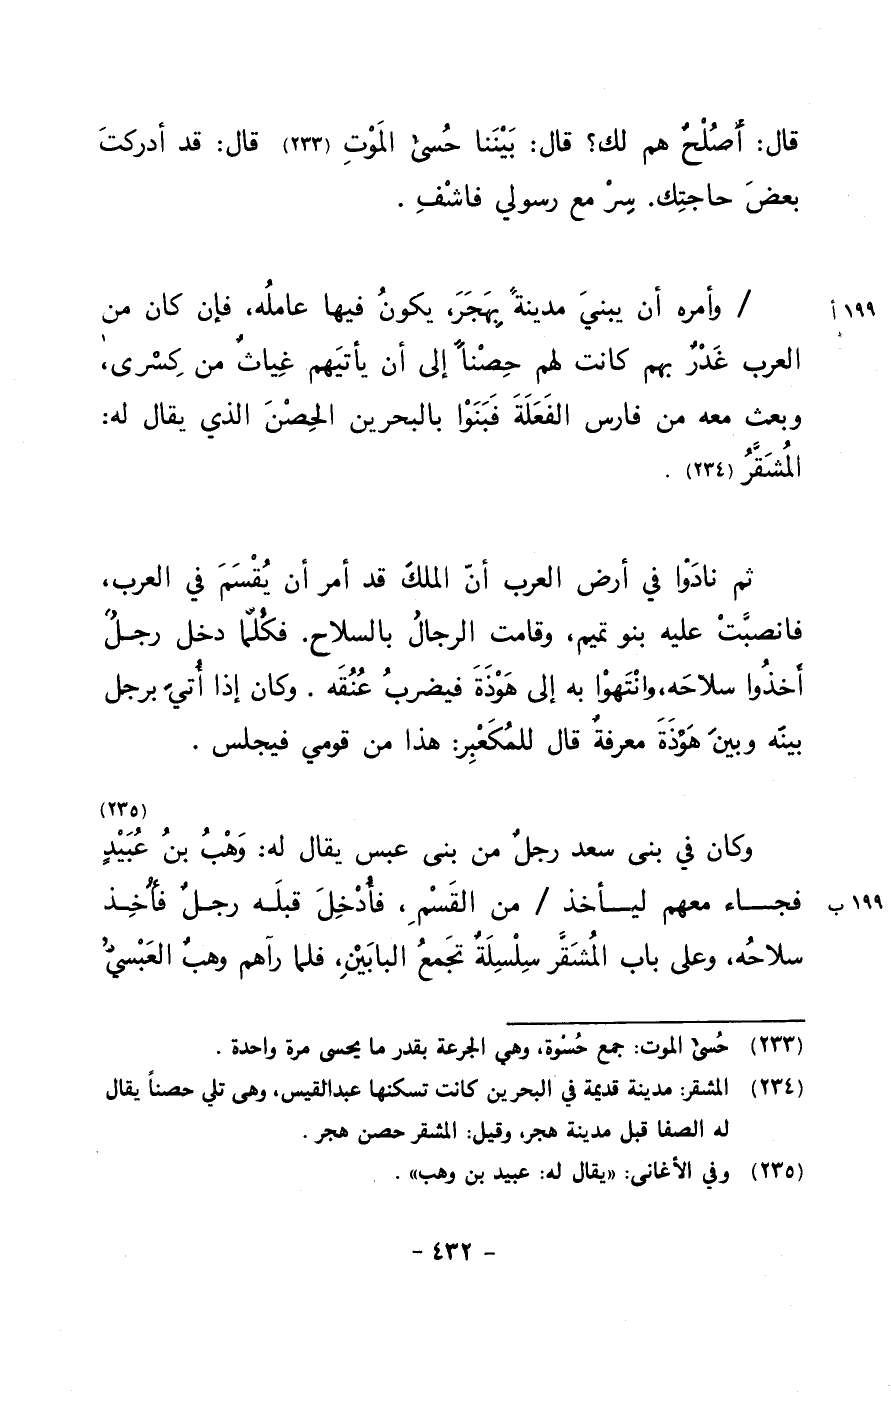 قال: أَصُلْحٌ هم لك؟ قال: بَيْنَنا حُسىٰ المَوْتِ (٢٣٣) قال: قد أدركتَ
بعضَ حاجتِك. سِرْ مع رسولي فاشْفِ .
١٩٩ أ / وأمره أن يبنيَ مدينةً بِهَجَرَ، يكونُ فيها عاملُه، فإن كان من
العرب غَدْرٌ بهم كانت لهم حِصْناً إلى أن يأتيَهم غِياثٌ من كِسْرى،
وبعث معه من فارس الفَعَلَةَ فَبَنَوْا بالبحرين الحِصْنَ الذي يقال له:
المُشَقَّرُ (٢٣٤) .
ثم نادَوْا في أرض العرب أنّ الملكَ قد أمر أن يُقْسَمَ في العرب،
فانصبَّتْ عليه بنو تميم، وقامت الرجالُ بالسلاح. فكُلّما دخل رجلٌ
أخذُوا سلاحَه،وانْتَهوْا به إلى هَوْذَةَ فيضربُ عُنُقَه . وكان إذا أُتيَ برجل
بينَه وبينَ هَوْذَةَ معرفةٌ قال للمُكَعْبِر: هذا من قومي فيجلس .
(٢٣٥)
وكان في بنى سعد رجلٌ من بنى عبس يقال له: وَهْبُ بنُ عُبَيْدٍ
فجاء معهم ليأخذ / من القَسْمِ، فأُدْخِلَ قبلَه رجلٌ فأُخِذ ١٩٩ ب
سلاحُه، وعلى باب المُشَقَّر سِلْسِلَةٌ تجَمعُ البابَيْنِ، فلما رآهم وهبٌ العَبْسيُّ
(٢٣٣) حُسىٰ الموت: جمع حُسْوة، وهي الجرعة بقدر ما يحسى مرة واحدة .
(٢٣٤) المشقر: مدينة قديمة في البحرين كانت تسكنها عبدالقيس، وهى تلي حصناً يقال
له الصفا قبل مدينة هجر، وقيل: المشقر حصن هجر .
(٢٣٥) وفي الأغانى: «يقال له: عبيد بن وهب» .
- ٤٣٢ -